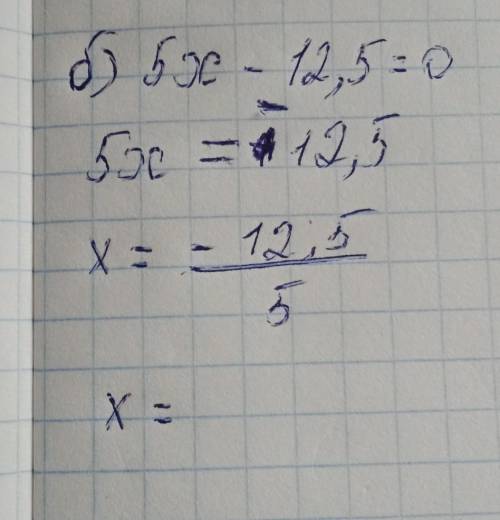 б) 5x - 12,5 = 0
5x = - 12,5
x = - 12,5 / 5
x =